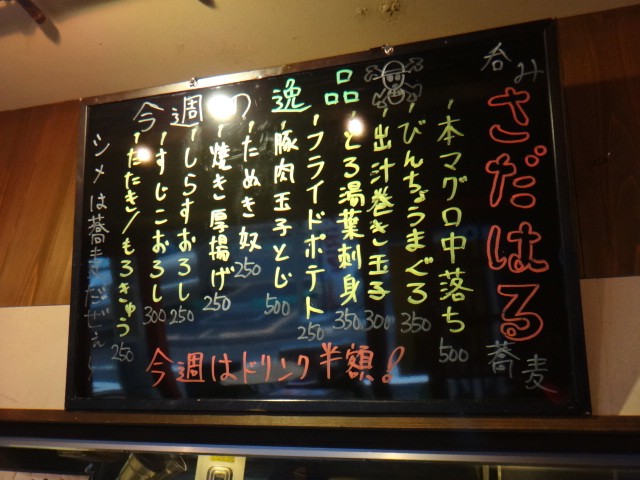 呑み
さだはる
蕎麦
今週の逸品
-本マグロ中落ち 500
-びんちょうまぐろ 350
-出汁巻き玉子 300
-とろ湯葉刺身 350
-フライドポテト 250
-豚肉玉子とじ 500
-たぬき奴 250
-焼き厚揚げ 250
-しらすおろし 250
-すじこおろし 300
-たたき/もろきゅう 250
シメは蕎麦だぜぇ〜
今週はドリンク半額!